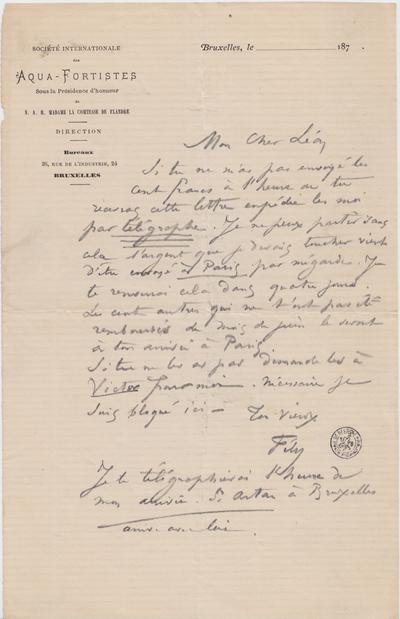 SOCIÉTÉ INTERNATIONALE
des
AQUA-FORTISTES
Sous la Présidence d'honneur
de
S. A. R. MADAME LA COMTESSE DE FLANDRE
DIRECTION
Bureaux
26, RUE DE L'INDUSTRIE, 26
BRUXELLES
Bruxelles, le 187
Mon Cher Léon
Si tu ne m'as pas envoyé les
cent francs à l'heure où tu
recevras cette lettre expédie les moi
par télégraphe. Je ne peux partir sans
cela l'argent que je devais toucher vient
d'être envoyé à Paris par mégarde. Je
te renverrai cela dans quatre jours.
Les cent autres qui ne t'ont pas été
remboursés de mois de juin le seront
à ton arrivée à Paris
Si tu ne les as pas demande les à
Victor pour moi. nécessaire je
suis bloqué ici — Ton vieux
Fély
Je te télégraphierai l'heure de
mon arrivée. Si Artan à Bruxelles
amène avec lui